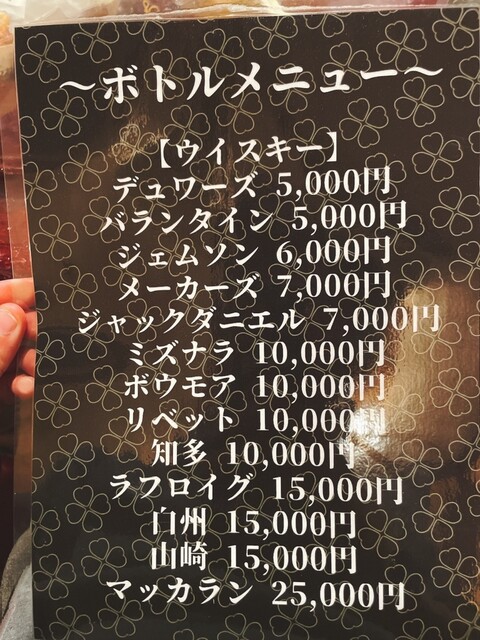 ～ボトルメニュー～
【ウイスキー】
デュワーズ 5,000円
バランタイン 5,000円
ジェムソン 6,000円
メーカーズ 7,000円
ジャックダニエル 7,000円
ミズナラ 10,000円
ボウモア 10,000円
リベット 10,000円
知多 10,000円
ラフロイグ 15,000円
白州 15,000円
山崎 15,000円
マッカラン 25,000円